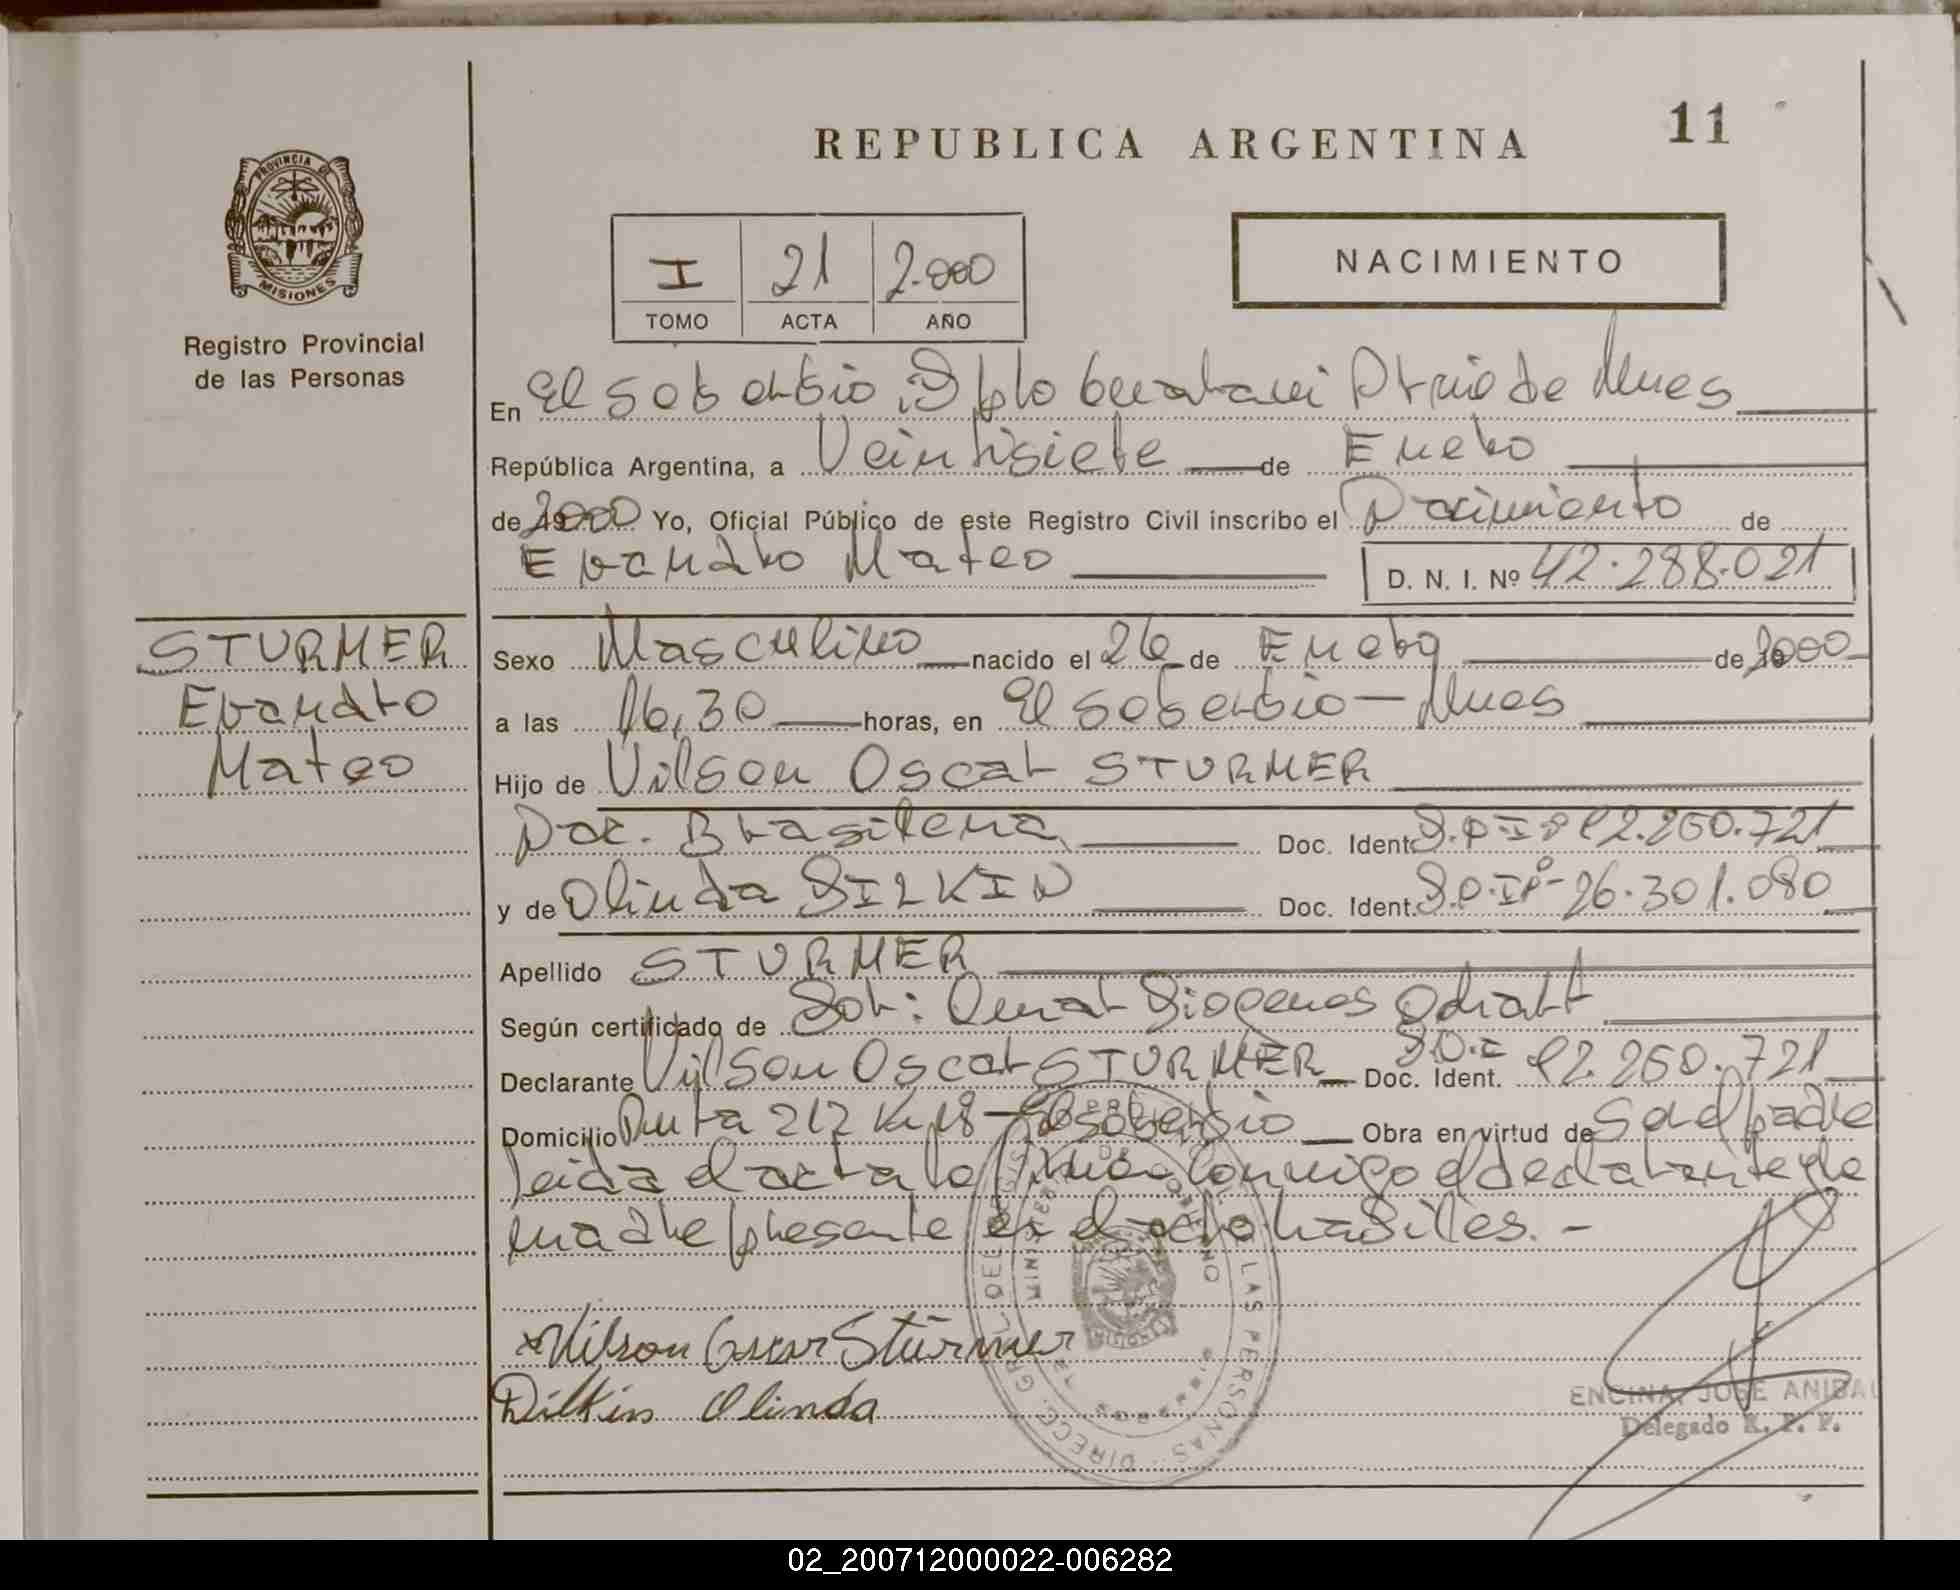 REPUBLICA ARGENTINA
11
PROVINCIA DE
MISIONES
Registro Provincial
de las Personas
I 21 2.000
TOMO ACTA AÑO
NACIMIENTO
En El Soberbio, Dpto Guarani Pvcia de Mnes
República Argentina, a Veintisiete de Enero
de 2000 Yo, Oficial Público de este Registro Civil inscribo el Nacimiento de
Evandro Mateo D. N. I. Nº 42.288.021
STURMER
Evandro
Mateo
Sexo Masculino nacido el 26 de Enero de 2000
a las 16,30 horas, en El Soberbio - Mnes
Hijo de Vilson Oscar STURMER
Nac. Brasilena Doc. Ident. 92.250.721
y de Olinda DILKIN Doc. Ident. 26.301.080
Apellido STURMER
Según certificado de Dor: Omar Diogenes
Declarante Vilson Oscar STURMER Doc. Ident. 92.250.721
Domicilio Ruta 212 Km 18 - El Soberbio Obra en virtud de Ser el padre
leida el acta la firman conmigo el declarante y la
madre presente en el acto habiles. -
Vilson Oscar Stürmer
Dilkin Olinda
ENCINA, JOSE ANIBAL
Delegado R. P. P.
02_200712000022-006282